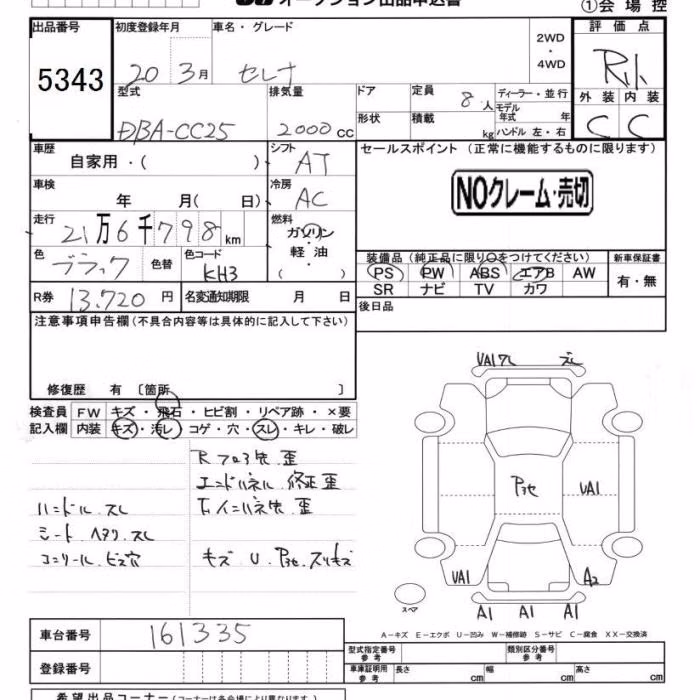 オークション出品申込書
①会場控
出品番号 初度登録年月 車名・グレード 2WD・4WD 評価点
5343 20 3月 セレナ R小
型式 排気量 ドア 定員 ディーラー・並行 外装 内装
DBA-CC25 2000cc 8人 モデル年式 年 C C
形状 積載 kg ハンドル 左・右
車歴 自家用・( ) シフト AT セールスポイント (正常に機能するものに限ります)
車検 年 月( 日) 冷房 AC NOクレーム・売切
走行 21万6千798km 燃料 ガソリン・軽油( )
色 ブラック 色替 色コード KH3
装備品 (純正品に限り○をつけてください) 新車保証書
PS PW ABS エアB AW 有・無
SR ナビ TV カワ
R券 13,720円 名変通知期限 月 日 後日品
注意事項申告欄 (不具合内容等は具体的に記入して下さい)
修復歴 有 〔箇所 〕
検査員 FW キズ・飛石・ヒビ割・リペア跡・×要
記入欄 内装 キズ・汚レ・コゲ・穴・スレ・キレ・破レ
Rフロア先 歪
エンドパネル 修正歪
ハンドル スレ
シート ヘタリ スレ
コンソール ビス穴
キズ U P3セ スリキズ
UA1ワレ スレ
P3セ UA1
UA1 A2
スペア
A1 A1 A1
A－キズ E－エクボ U－凹み W－補修跡 S－サビ C－腐食 XX－交換済
車台番号 161335
型式指定番号 参考 類別区分番号 参考
登録番号 車庫証明用 参考 長さ cm 幅 cm 高さ cm
希望出品コーナー (コーナーは各会場により異なります)